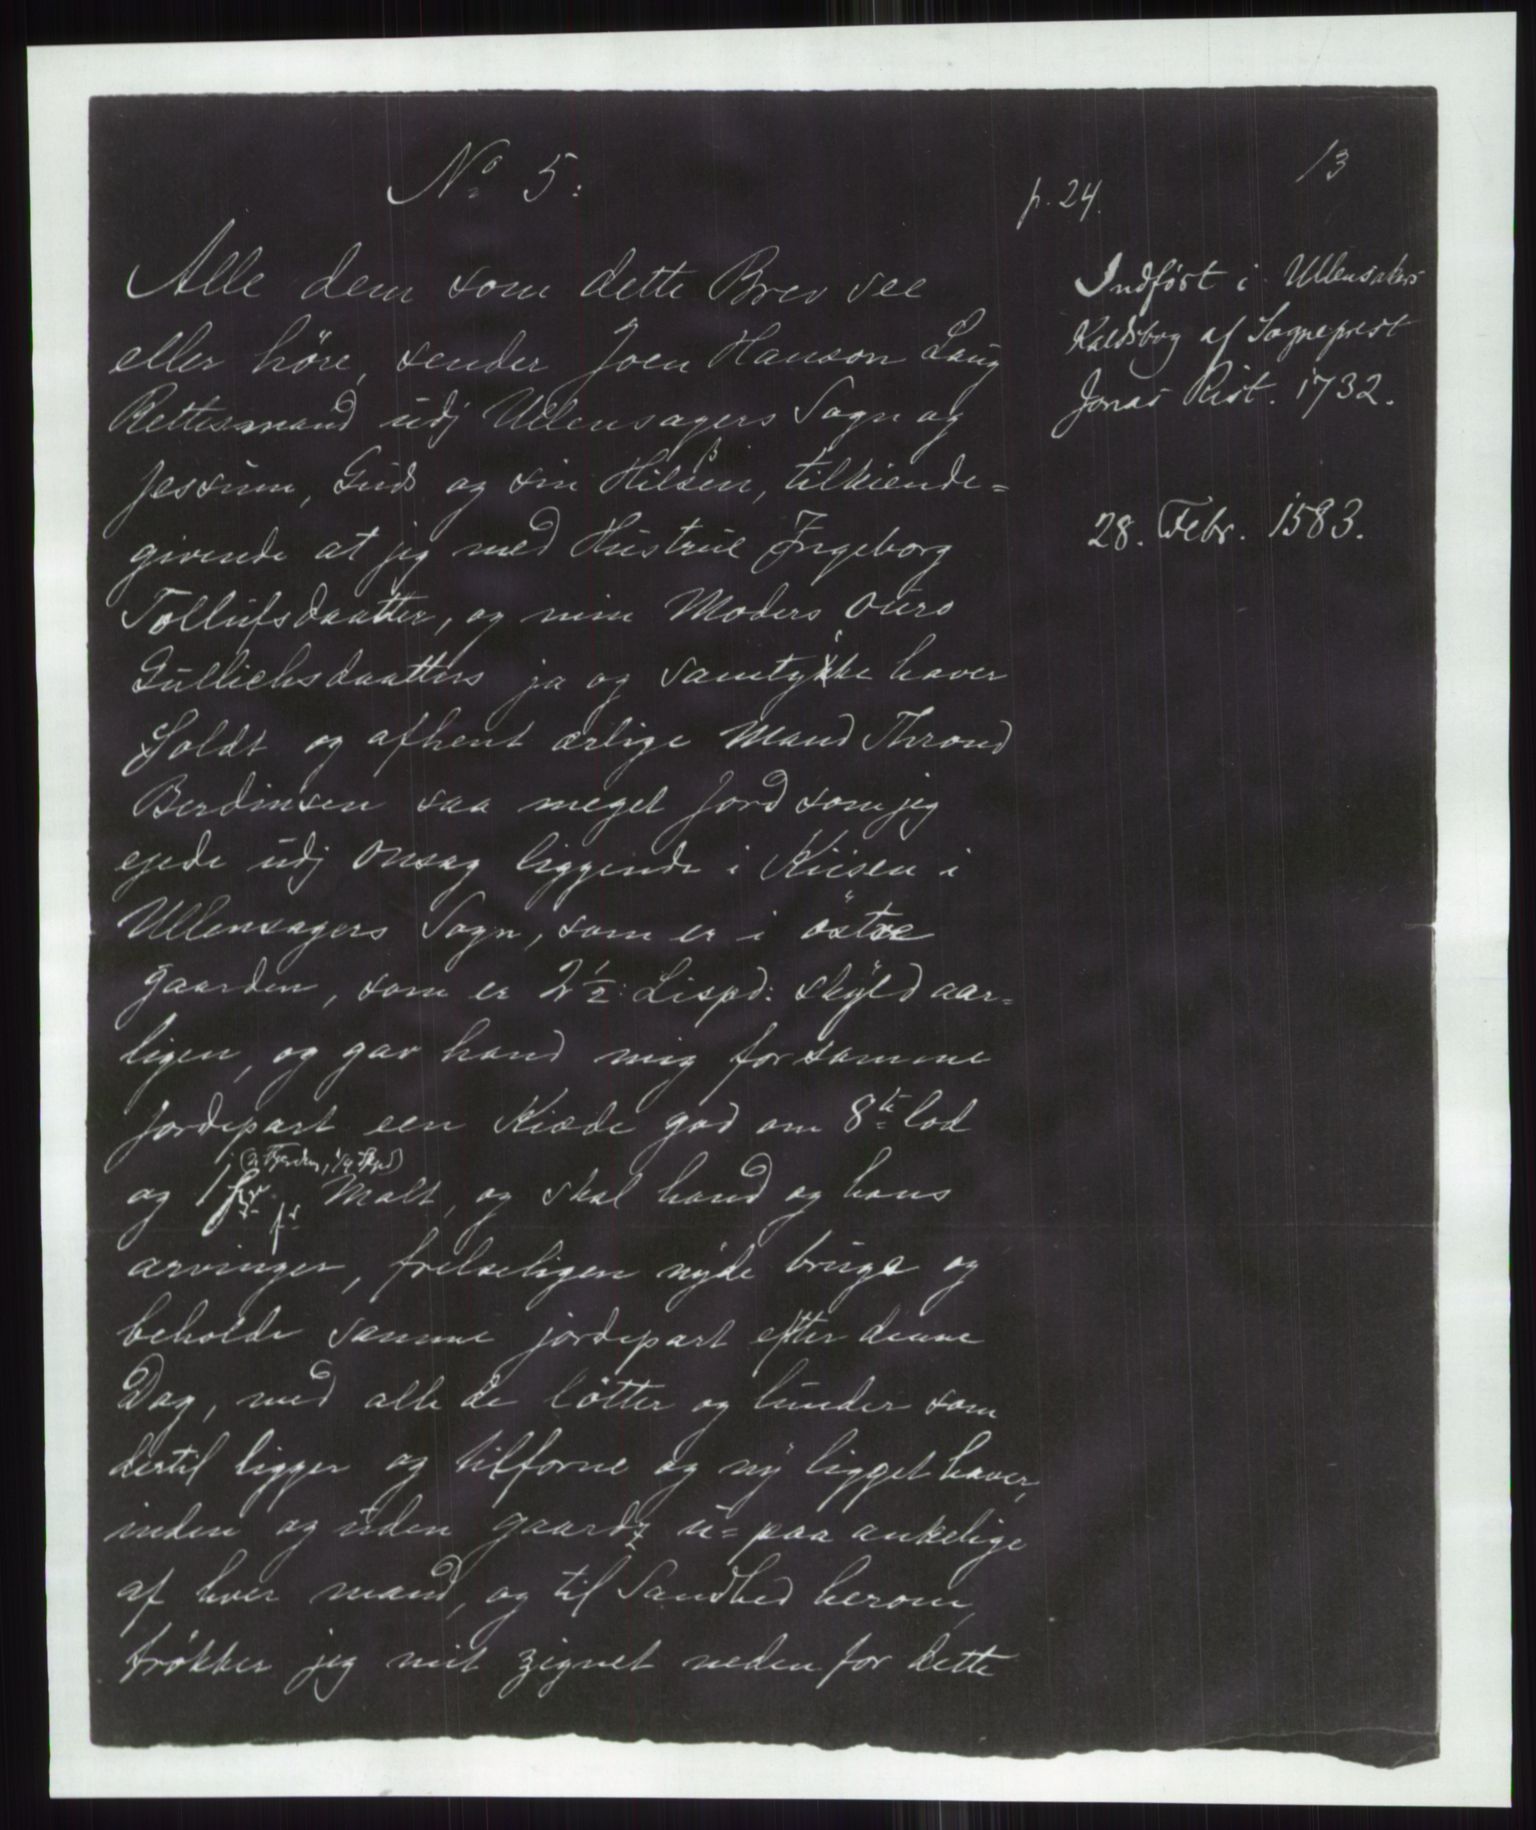 No 5:
p. 24.
13
Alle dem som dette Brev see
eller höre, sender Joen Hanson Laug
Rettismand udj Ullensagers Sogn og
Jessum, Guds og sin Hilsen, tilkiende=
givende at jeg med Hustrue Ingeborg
Tollufsdaatter, og min Moders Ouro
Gullichsdaatters ja og samtykke haver
Soldt og afhent ærlige Mand Thrond
Berdinsen saa meget Jord som jeg
ejede udj Onsag liggende i Kiisen i
Ullensagers Sogn, som er i östre
gaarden, som er 2 1/2: Lispd: skÿld aar=
ligen, og gav hand mig for samme
Jordepart een Kiæde god om 8te lod
og 1 Malt, og skal hand og hans
arvinger, frelseligen nÿde bruge og
beholde samme jordepart efter denne
Dag, med alle de lötter og lunder som
dertil ligger og tilforne og nÿ ligget haver,
inden og uden gaards u=paa ankelige
af hver mand, og til Sandhed herom,
trøkker jeg mit zignet neden for dette
Indført i Ullensakers
Kaldsbog af Sogneprest
Jonas Rist. 1732.
28. Febr. 1583.